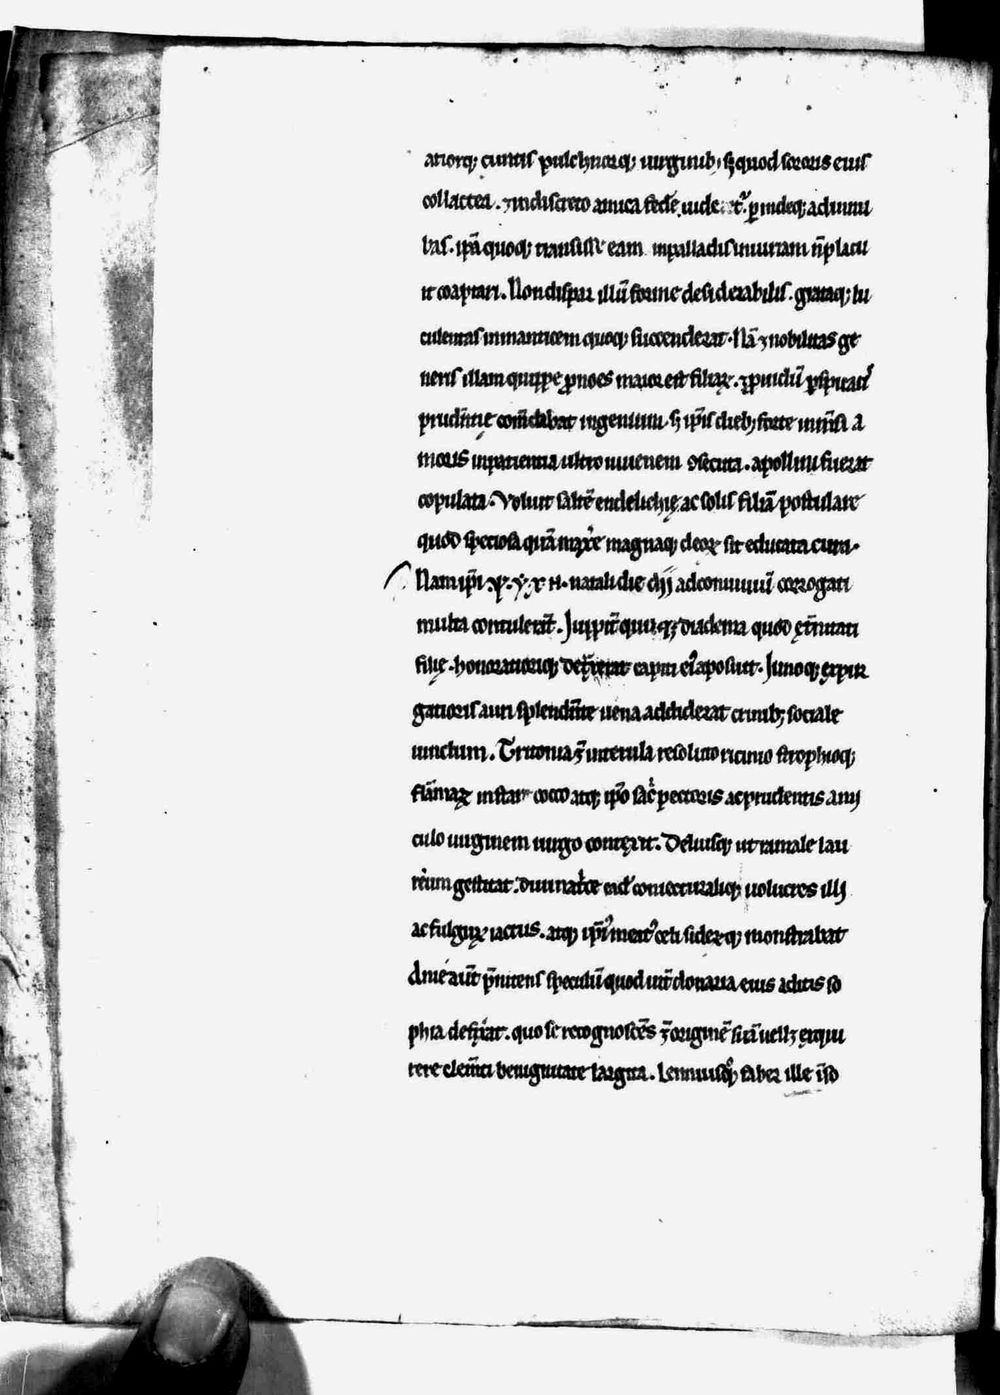 atiorq; cunctis pulchriorq; uirginib; sȝ quod sororis eius
collactea . ⁊ indiscreto amica fede᷒ uide t᷒. ꝑindeq; adiuuu
bas . ipā quoq; transisse eam in palladis iniuriam n̄ placu
it coaptari . Non dispar illū forme desiderabilis . grataq; lu
culentas in manticem quoq; succenderat . Nā ⁊ nobilitas ge
neris illam quippe ꝓnoes maior est filiaꝝ . ⁊ ꝓuidū ꝑspicaci᷒
prudn̄tie com̄dabat ingenium . sȝ ip̄is dieb; forte inm̄sa a
moris inpatientia ultro iuuenem ꝯsecuta . apollini fuerat
copulata . Voluit saltē endelichię ac solis filiā postulare
quod speciosa quā maxīe magnaq; deoꝝ sit educata cura .
Nam ip̄i . ψ . y . x H . natali die dij ad conuiuiū corrogati
multa contulerūt . Iuppit̄ quippe diadema quod et̄nitati
filię . honoratioriq; det̄xerat capiti ei᷒ aposuit . Iunoq; ex pur
gatioris auri splendn̄te uena addiderat crinib; sociale
uinctum . Tritonia ⁊ interula resoluto ricinio strophioq;
flāmaꝝ instar cocco atq; ip̄o sac̄ pectoris ac prudentis ami
culo uirginem uirgo contexit . Deliusq; ut ramale lau
reum gestitat . diuinatͥce eidē coniecturaliq; uolucres illi
ac fulguꝝ iactus . atq; ip̄i᷒ meat᷒ celi sideꝝq; monstrabat
Anie aūt p̄nitens speculū quod int̄ donaria eius aditis so
phia defixerat . quo se recognoscēs ⁊ originē suā uellȝ exqui
rere clem̄ti benignitate largita . Lemniusq; faber ille i͞so